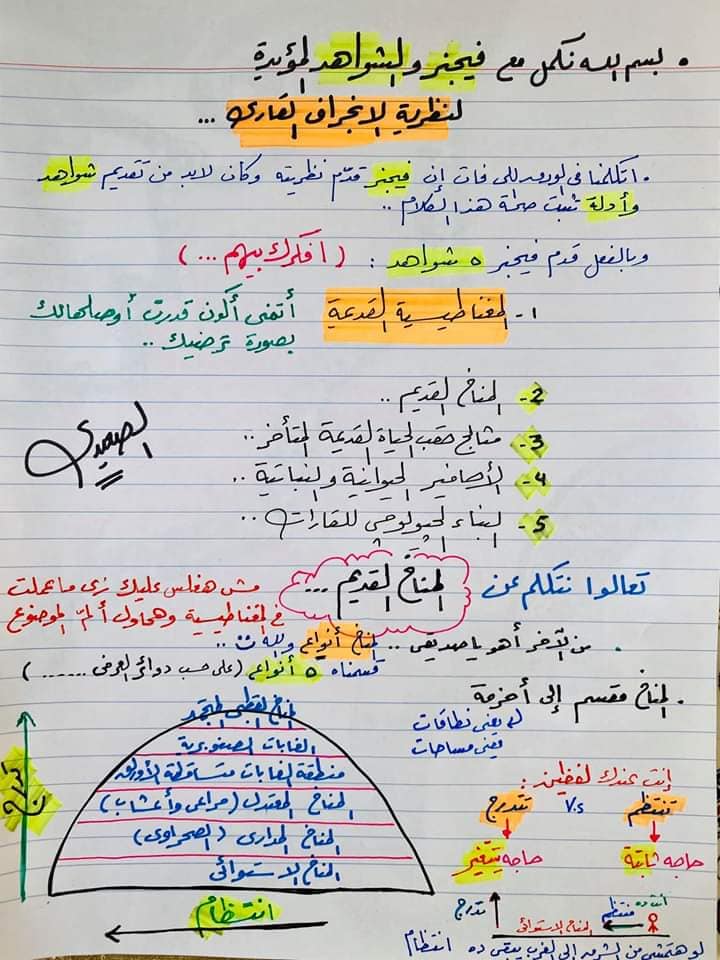 • بسم الله نكمل مع فيجنر والشواهد المؤيدة
لنظرية الانجراف القارى ...
• اتكلمنا فى البوست اللى فات إن فيجنر قدّم نظريته وكان لابد من تقديم شواهد
وأدلة تثبت صحة هذا الكلام ..
وبالفعل قدم فيجنر ٥ شواهد : ( افكرك بيهم ... )
١- المغناطيسية القديمة
أتمنى أكون قدرت أوصلهالك
بصورة ترضيك ..
2- المناخ القديم ..
3- مثالج حقب الحياة القديمة المتأخر ..
4- الأحافير الحيوانية والنباتية ..
5- البناء الجيولوجى للقارات ..
الصعيدى
تعالوا نتكلم عن المناخ القديم ...
مش هفلس عليك زى ما عملت
فى المغناطيسية وهحاول ألمّ الموضوع
• من الآخر أهو يا صديقى .. المناخ أنواع
قسمناه ٥ أنواع (على حسب دوائر العرض ......)
• المناخ مقسم إلى أحزمة
يعنى نطاقات
يعنى مساحات
المناخ القطبى المتجمد
الغابات الصنوبرية
منطقة الغابات متساقطة الأوراق
المناخ المعتدل (مراعى وأعشاب)
المناخ المدارى (الصحراوى)
المناخ الاستوائى
تدرج
انتظام
إنت عندك لفظين :
تنتظم V.s تتدرج
حاجه ثابتة
حاجه بتتغير
تدرج
منتظم
المناخ الاستوائى
لو هتمشى من الشرق إلى الغرب يبقى ده انتظام